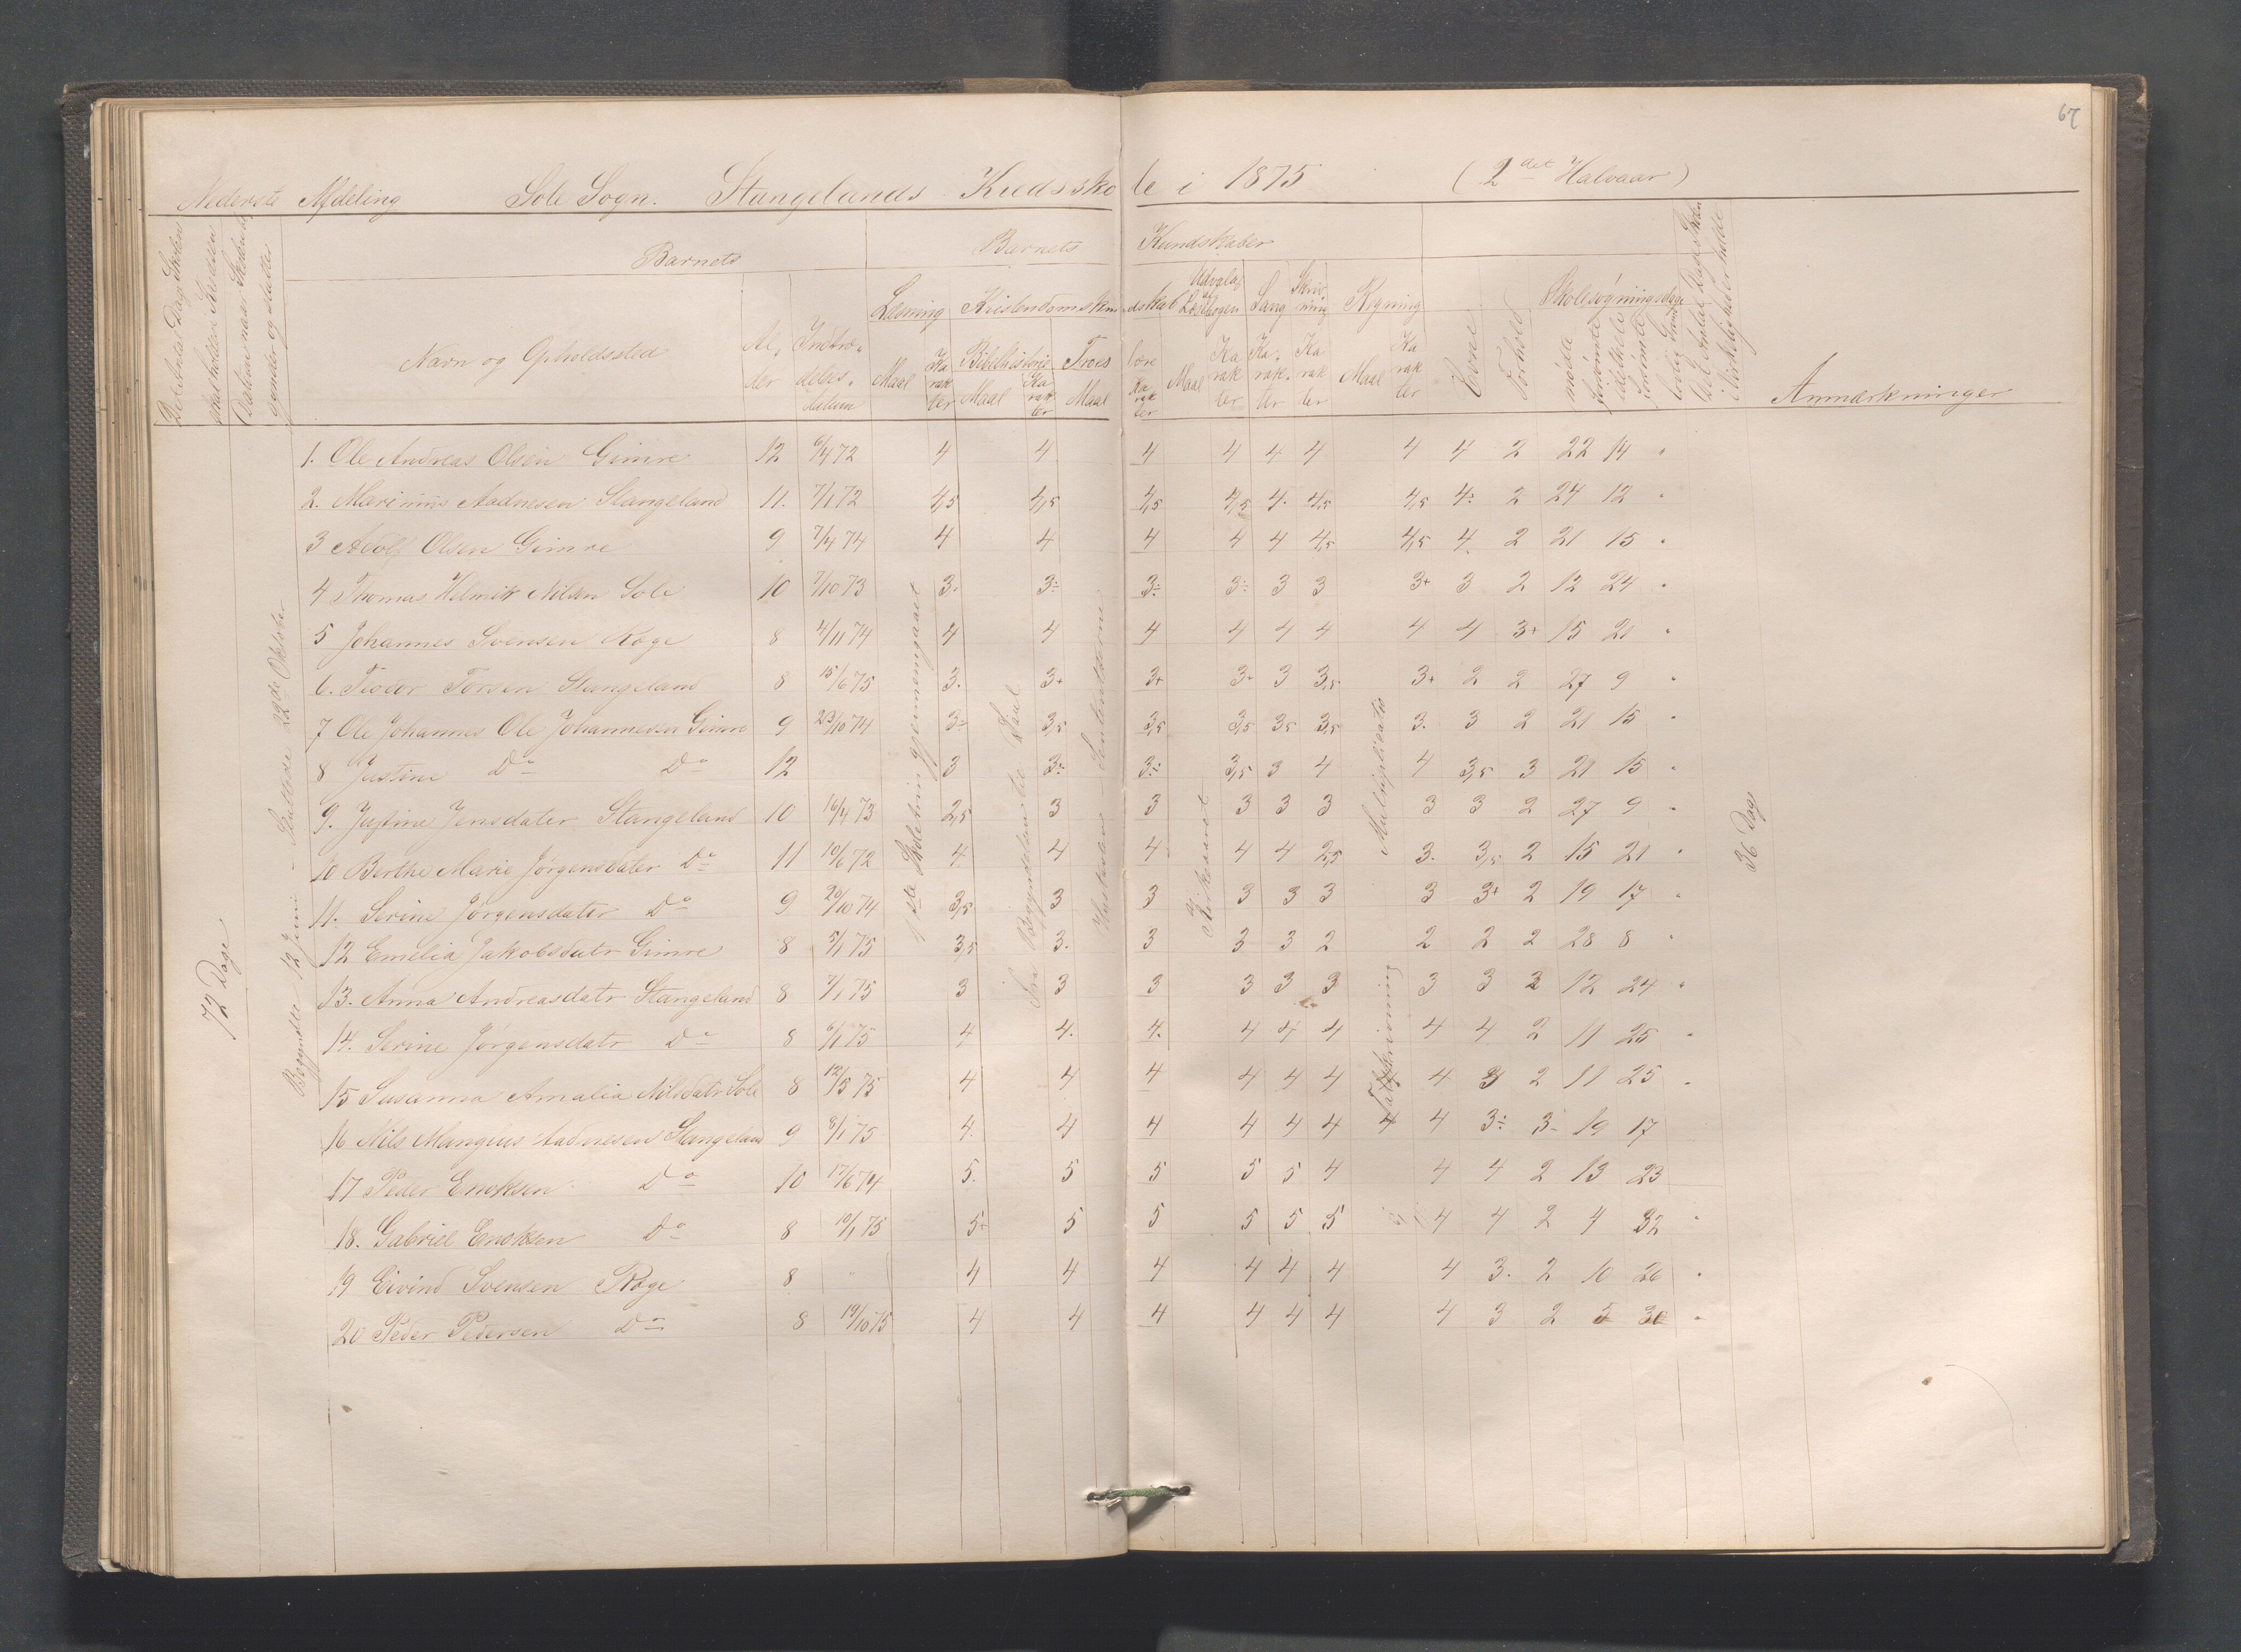 67
Nederste Afdeling Sole Sogn. Stangelands Kredsskole i 1875 (2det Halvaar)
Det Antal Dage Skolen skal holdes i Kredsen
Datum naar Skolen begynder og slutter
Barnets
Navn og Opholdssted
Alder
Indtrædelsesdatum
Barnets Kundskaber
Læsning
Maal
Karakter
Kristendomskundskab
Bibelhistorie
Maal
Karakter
Troeslære
Maal
Karakter
Udvalg af Læsebogen
Maal
Karakter
Sang
Karakter
Skrivning
Karakter
Regning
Maal
Karakter
Evne
Forhold
Skolesøgningsdage
mødte
forsømte
forsømte af lovlig Grund
Det Antal Dage Skolen i Virkeligheden holdes
Anmærkninger
72 Dage
Begyndte 12 Juni - Sluttede 22de Oktober
1ste Skoletrin gjennemgaaet
Fra Begyndelsen til Saul
Multiplikation
Talskrivning
36 Dage
1. Ole Andreas Olsen Gimre 12 6/4 72 4 4 4 4 4 4 4 4 2 22 14 "
2. Marinius Aadnesen Stangeland 11. 7/1 72 4,5 4,5 4,5 4,5 4. 4,5 4,5 4: 2 24 12 "
3 Adolf Olsen Gimre 9 7/4 74 4 4 4 4 4 4,5 4,5 4. 2 21 15 "
4 Thomas Helmik Nilsen Sole 10 7/10 73 3. 3÷ 3÷ 3÷ 3 3 3+ 3 2 12 24 "
5 Johannes Svensen Røge 8 4/11 74 4 4 4 4 4 4 4 4 3+ 15 21 "
6. Teodor Torsen Stangeland 8 15/6 75 3. 3+ 3+ 3+ 3 3,5 3+ 2 2 27 9 "
7 Ole Johannes Ole Johannesen Gimre 9 23/10 74 3÷ 3,5 3,5 3,5 3,5 3,5 3. 3 2 21 15 "
8 Justine Do Do 12 3 3÷ 3÷ 3,5 3 4 4 3,5 3 21 15 "
9. Justine Jensdater Stangeland 10 16/4 73 2,5 3 3 3 3 3 3 3 2 27 9 "
10 Berthe Marie Jørgensdater Do 11 10/6 72 4 4 4 4 4 2,5 3. 3,5 2 15 21 "
11. Serine Jørgensdater Do 9 20/10 74 3,5 3 3 3 3 3 3 3+ 2 19 17 "
12 Emelia Jakobsdatr Gimre 8 5/1 75 3,5 3. 3 3 3 2 2 2 2 28 8 "
13. Anna Andreasdatr Stangeland 8 7/1 75 3 3 3 3 3 3 3 3 2 12 24 "
14. Serine Jørgensdatr Do 8 6/1 75 4 4. 4. 4 4 4 4 4 2 11 25 "
15 Susanna Amalia Nilsdatr Sole 8 12/5 75 4 4 4 4 4 4 4 3 2 11 25 "
16 Nils Mangius Aadnesen Stangeland 9 8/1 75 4. 4 4 4 4 4 4 4 3÷ 3- 19 17
17 Peder Enoksen Do 10 17/6 74 5. 5 5 5 5 4 4 4 2 13 23
18. Gabriel Enoksen Do 8 10/1 75 5+ 5 5 5 5 5 4 4 2 4 32 "
19 Eivind Svensen Røge 8 4 4 4 4 4 4 4 3. 2 10 26 "
20 Peder Pedersen Do 8 19/10 75 4 4 4 4 4 4 4 3 2 5 30 "